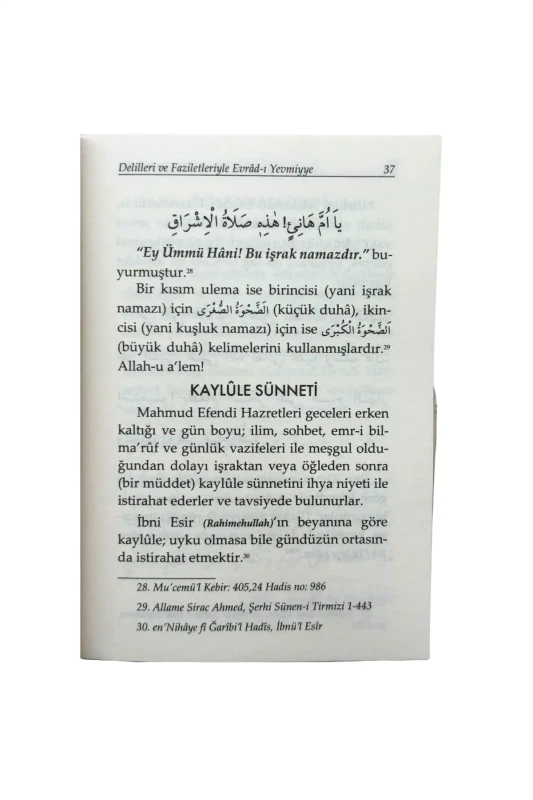 Delilleri ve Faziletleriyle Evrâd-ı Yevmiyye 37
يَا اُمَّ هَانِئٍ! هٰذِهٖ صَلَاةُ الْاِشْرَاقِ
“Ey Ümmü Hâni! Bu işrak namazdır.” bu-
yurmuştur.28
Bir kısım ulema ise birincisi (yani işrak
namazı) için اَلضَّحْوَةُ الصُّغْرَى (küçük duhâ), ikin-
cisi (yani kuşluk namazı) için ise اَلضَّحْوَةُ الْكُبْرَى
(büyük duhâ) kelimelerini kullanmışlardır.29
Allah-u a’lem!
KAYLÛLE SÜNNETİ
Mahmud Efendi Hazretleri geceleri erken
kaltığı ve gün boyu; ilim, sohbet, emr-i bil-
ma’rûf ve günlük vazifeleri ile meşgul oldu-
ğundan dolayı işraktan veya öğleden sonra
(bir müddet) kaylûle sünnetini ihya niyeti ile
istirahat ederler ve tavsiyede bulunurlar.
İbni Esir (Rahimehullah)’ın beyanına göre
kaylûle; uyku olmasa bile gündüzün ortasın-
da istirahat etmektir.30
28. Mu’cemü’l Kebir: 405,24 Hadis no: 986
29. Allame Sirac Ahmed, Şerhi Sünen-i Tirmizi 1-443
30. en’Nihâye fî Ğarîbi’l Hadîs, İbnü’l Esîr